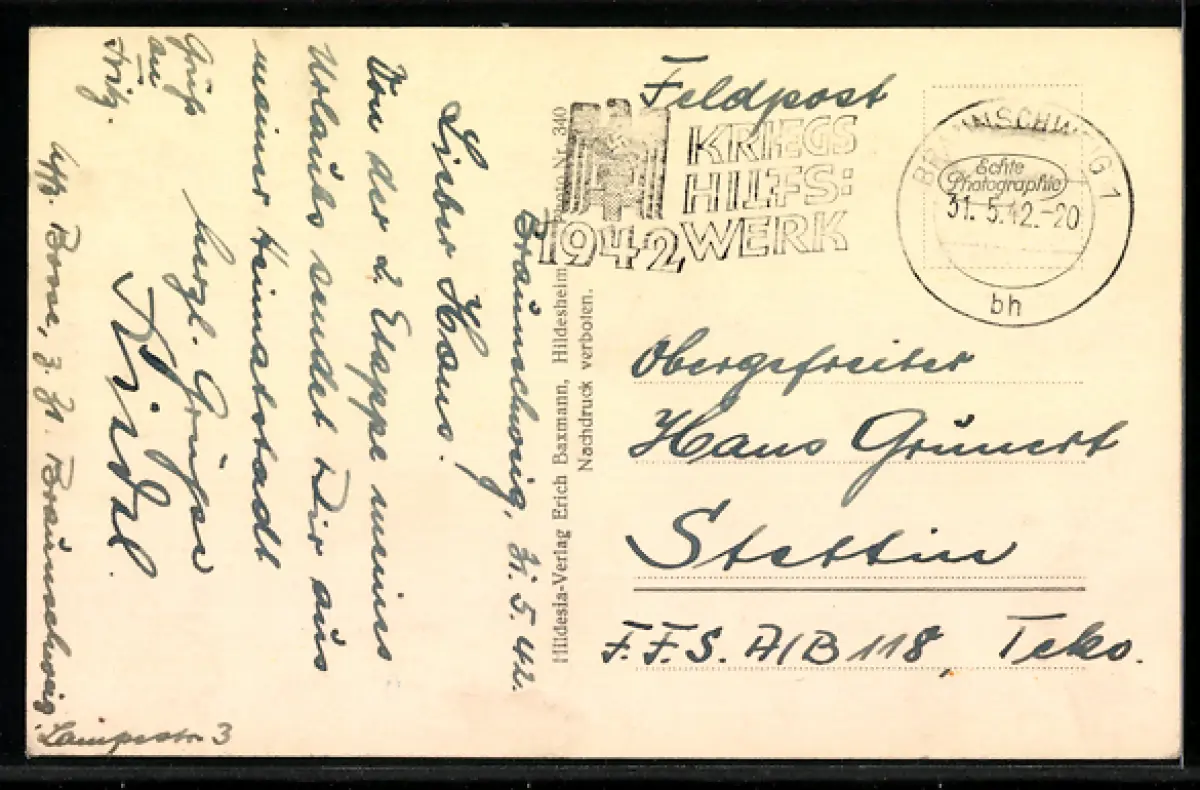 Feldpost
KRIEGS
HILFS:
WERK
1942
BRAUNSCHWEIG 1
Echte
Photographie
31.5.42.-20
bh
Obergefreiter
Hans Grünert
Stettin
F.F.S. A/B 118, Teko.
Photo Nr. 340
Hildesia-Verlag Erich Baxmann, Hildesheim
Nachdruck verboten.
Braunschweig, 31. 5. 42.
Lieber Hans.
Von der 2. Etappe meines
Urlaubs sendet Dir aus
meiner Heimatstadt
herzl. Grüße
Gruß
an
Fritz.
Uffz. Boose, z. Zt. Braunschweig,